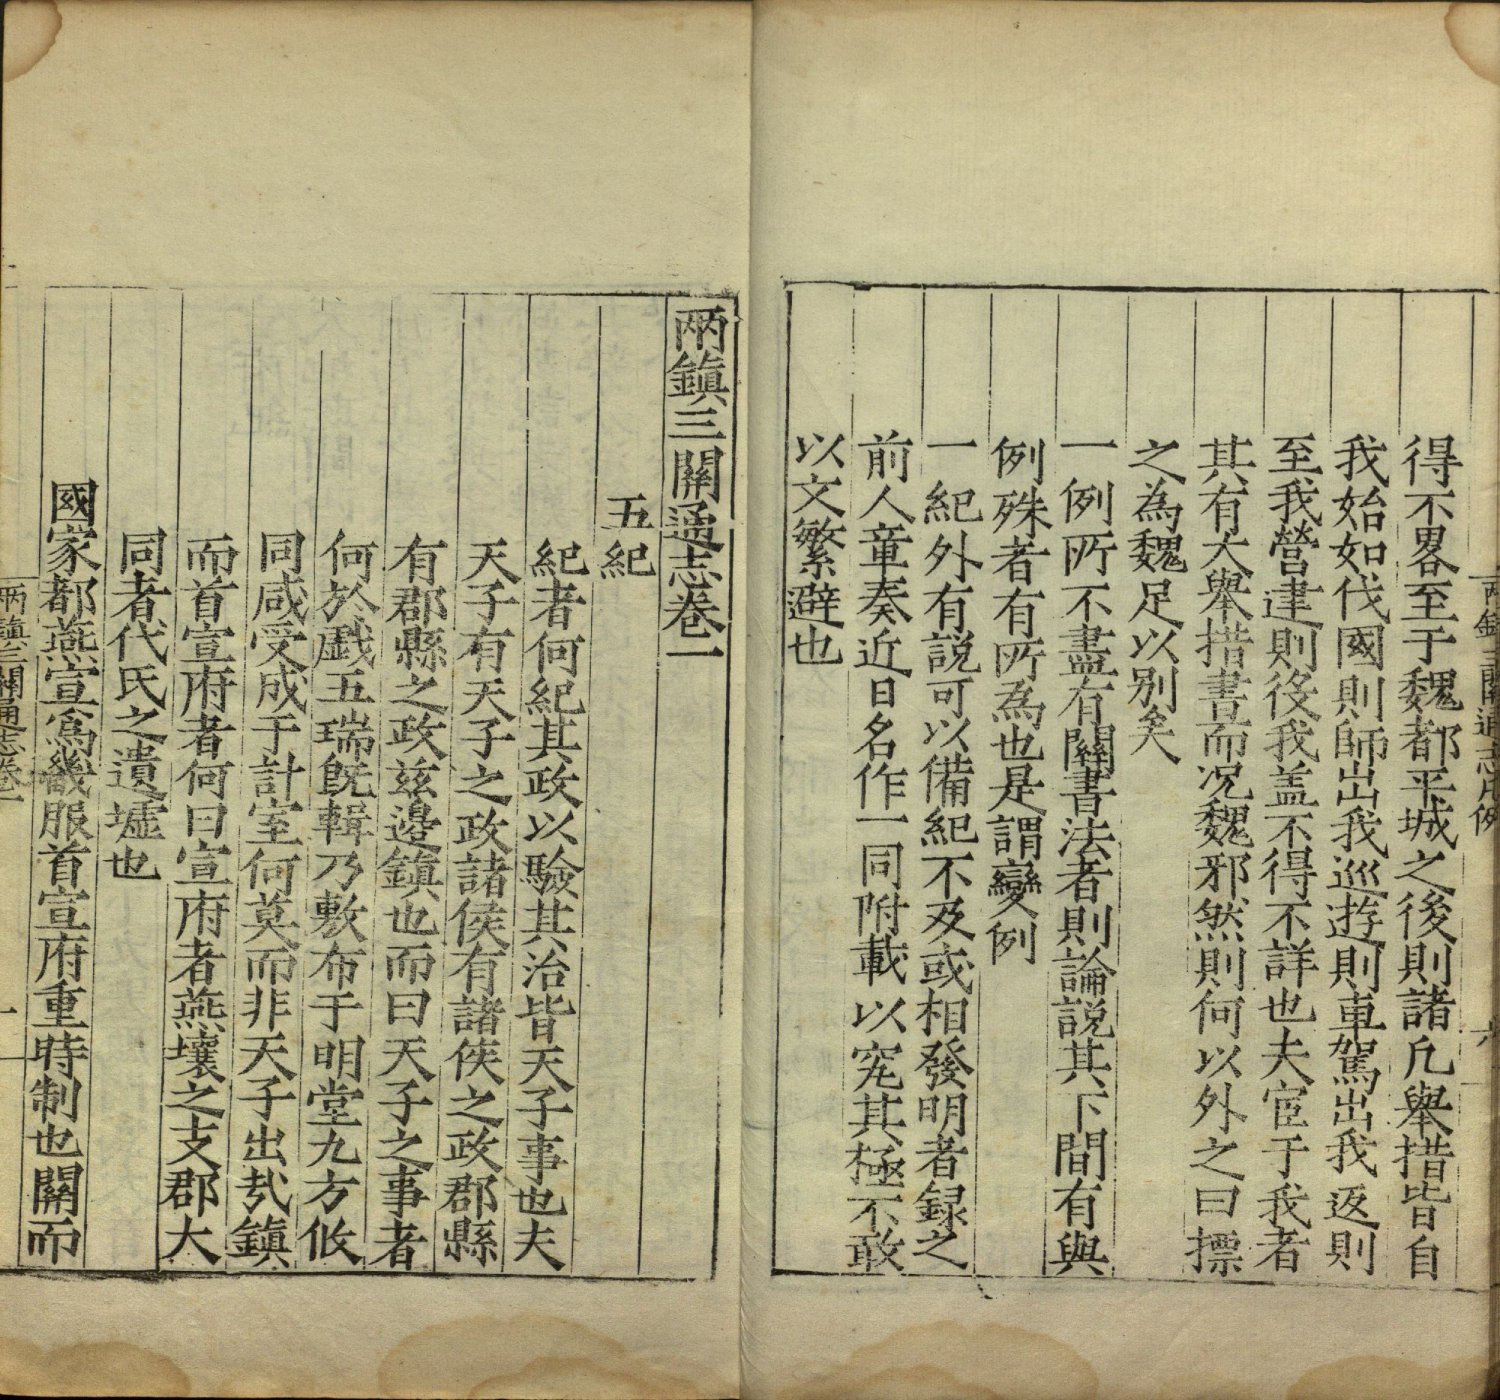 得不畧至于魏都平城之後則諸凡舉措皆自
我始如代國則師出我巡遊則車駕出我返則
至我營建則役我盖不得不詳也夫宦于我者
其有大舉措書而况魏邪然則何以外之曰摽
之為魏足以別矣
一例所不盡有關書法者則論説其下間有與
例殊者有所為也是謂變例
一紀外有説可以備紀不及或相發明者録之
前人章奏近日名作一同附載以究其極不敢
以文繁避也
兩鎮三關通志卷一
五紀
紀者何紀其政以驗其治皆天子事也夫
天子有天子之政諸侯有諸侯之政郡縣
有郡縣之政兹邊鎮也而曰天子之事者
何於戯五瑞既輯乃敷布于明堂九方攸
同咸受成于計室何莫而非天子出㢤鎮
而首宣府者何曰宣府者燕壤之支郡大
同者代氏之遺墟也
國家都燕宣爲畿服首宣府重時制也關而
兩鎮三關通志卷一
一